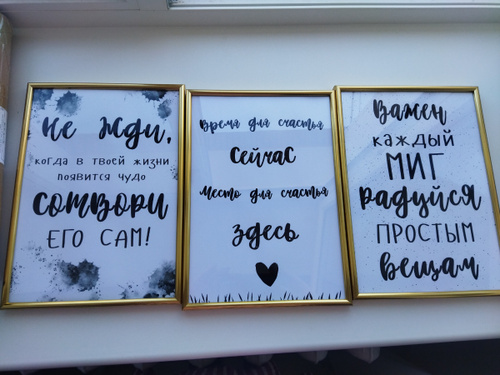 Не жди,
когда в твоей жизни
появится чудо
сотвори
его сам!
Время для счастья
сейчас
Место для счастья
здесь
Важен
каждый
миг
радуйся
простым
вещам